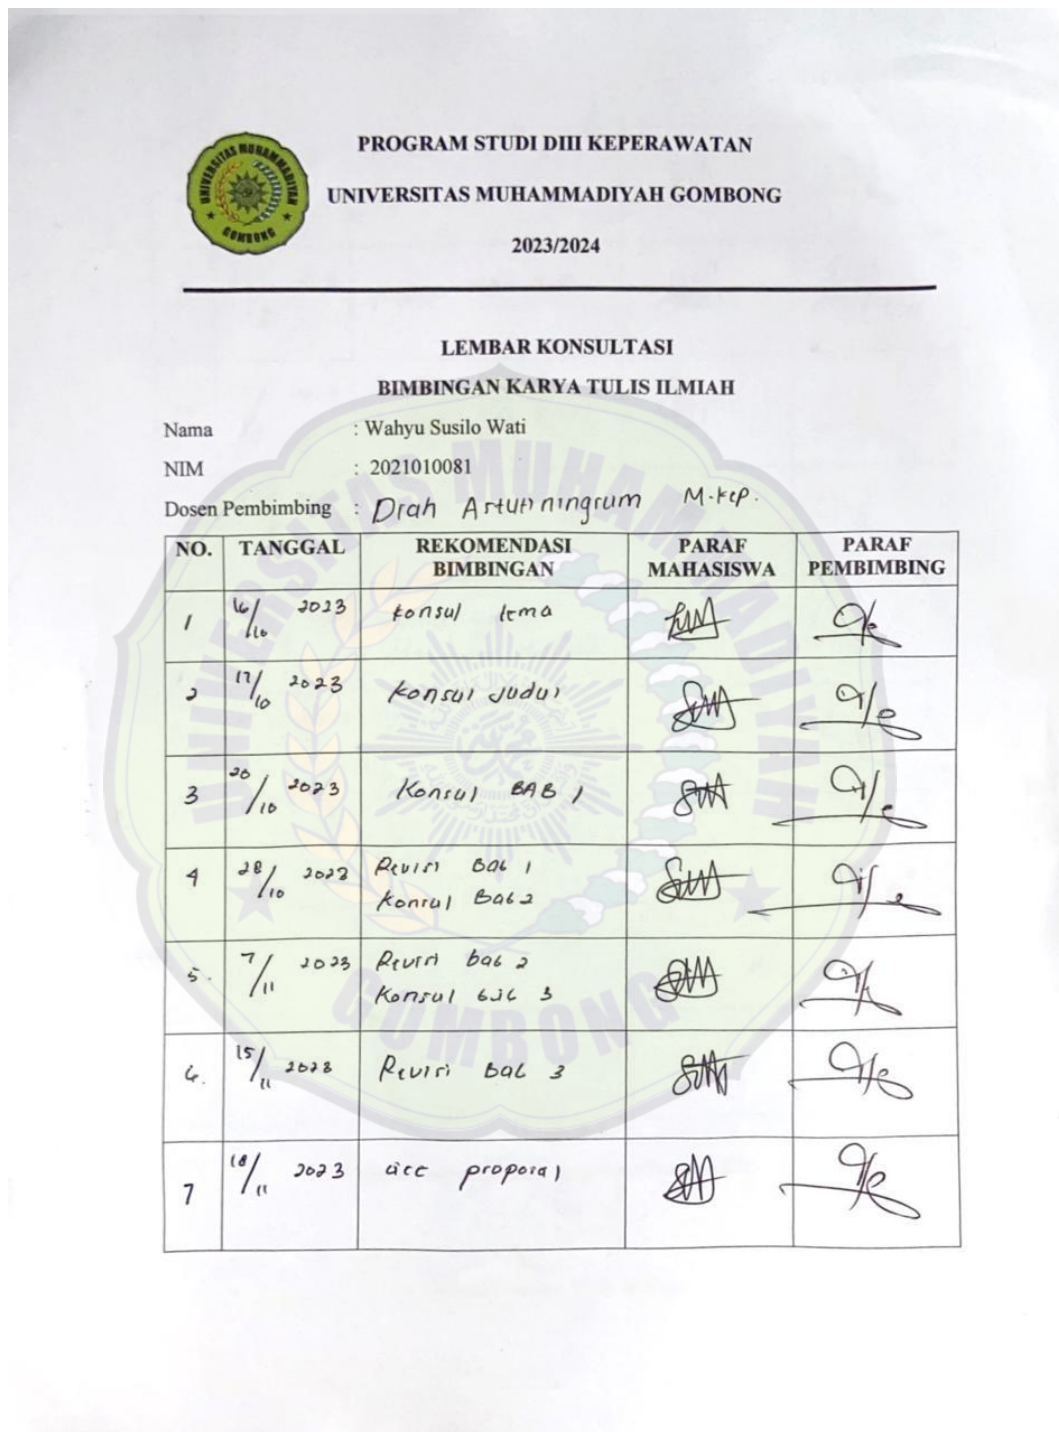 UNIVERSITAS MUHAMMADIYAH
GOMBONG
PROGRAM STUDI DIII KEPERAWATAN
UNIVERSITAS MUHAMMADIYAH GOMBONG
2023/2024
LEMBAR KONSULTASI
BIMBINGAN KARYA TULIS ILMIAH
Nama : Wahyu Susilo Wati
NIM : 2021010081
Dosen Pembimbing : Diah Astutiningrum M.kep.
NO. TANGGAL REKOMENDASI BIMBINGAN PARAF MAHASISWA PARAF PEMBIMBING
1 /10 2023 konsul tema
2 17/10 2023 konsul Judul
3 20/10 2023 Konsul BAB 1
4 28/10 2023 Revisi Bab 1
konsul Bab 2
5. 7/11 2023 Revisi bab 2
Konsul bab 3
6. 15/11 2023 Revisi bab 3
7 18/11 2023 acc proposal
UNIVERSITAS MUHAMMADIYAH
GOMBONG